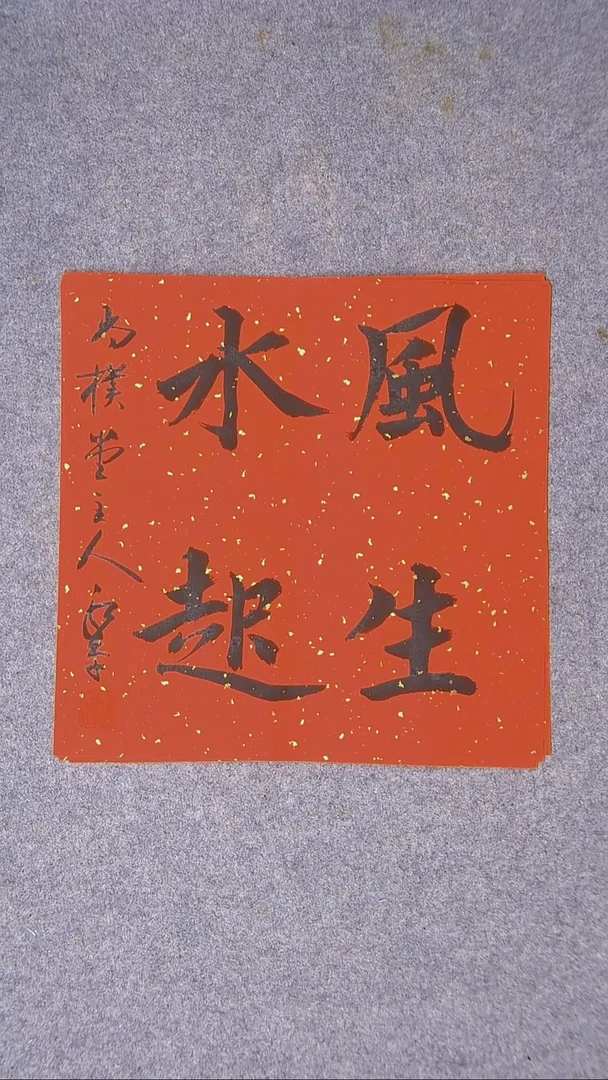 風生
水起
樸堂主人